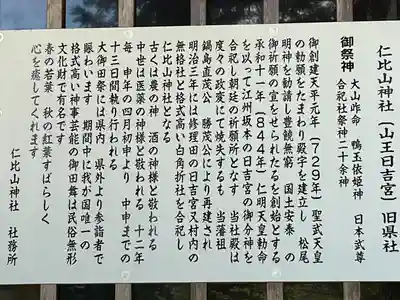 仁比山神社(山王日吉宮)旧県社
御祭神
大山咋命 鴨玉依姫神 日本武尊
合祀社祭神二十余神
御創建天平元年(729年)聖武天皇
の勅願をたまわり殿宇を建立し 松尾
明神を勧請し豊饒無窮 国土安泰 の
御祈願の宣をせられたるを創始とする
承和十一年(844年)仁明天皇勅命
を以って江州坂本の日吉宮の御分神を
合祀し朝廷の祈願所となす 当社殿は
度々の政変にて焼失するも 当藩祖
鍋島直茂公 勝茂公により再建され
明治三年には修理田の日吉宮又村内の
無格社と格式高い白角折社を合祀し
仁比山神社となる
古くは農の神様 酒の神様と敬われる
中世は医薬の神様と敬われる 十二年
毎 申年の四月初申より 中申までの
十三日間執り行われる
大御田祭には県内 県外より参詣者で
賑わいます 期間中に我が国唯一の
格式高い神事芸能の御田舞は民俗無形
文化財で有名です
春の若葉 秋の紅葉すばらしく
心を癒してくれます
仁比山神社 社務所